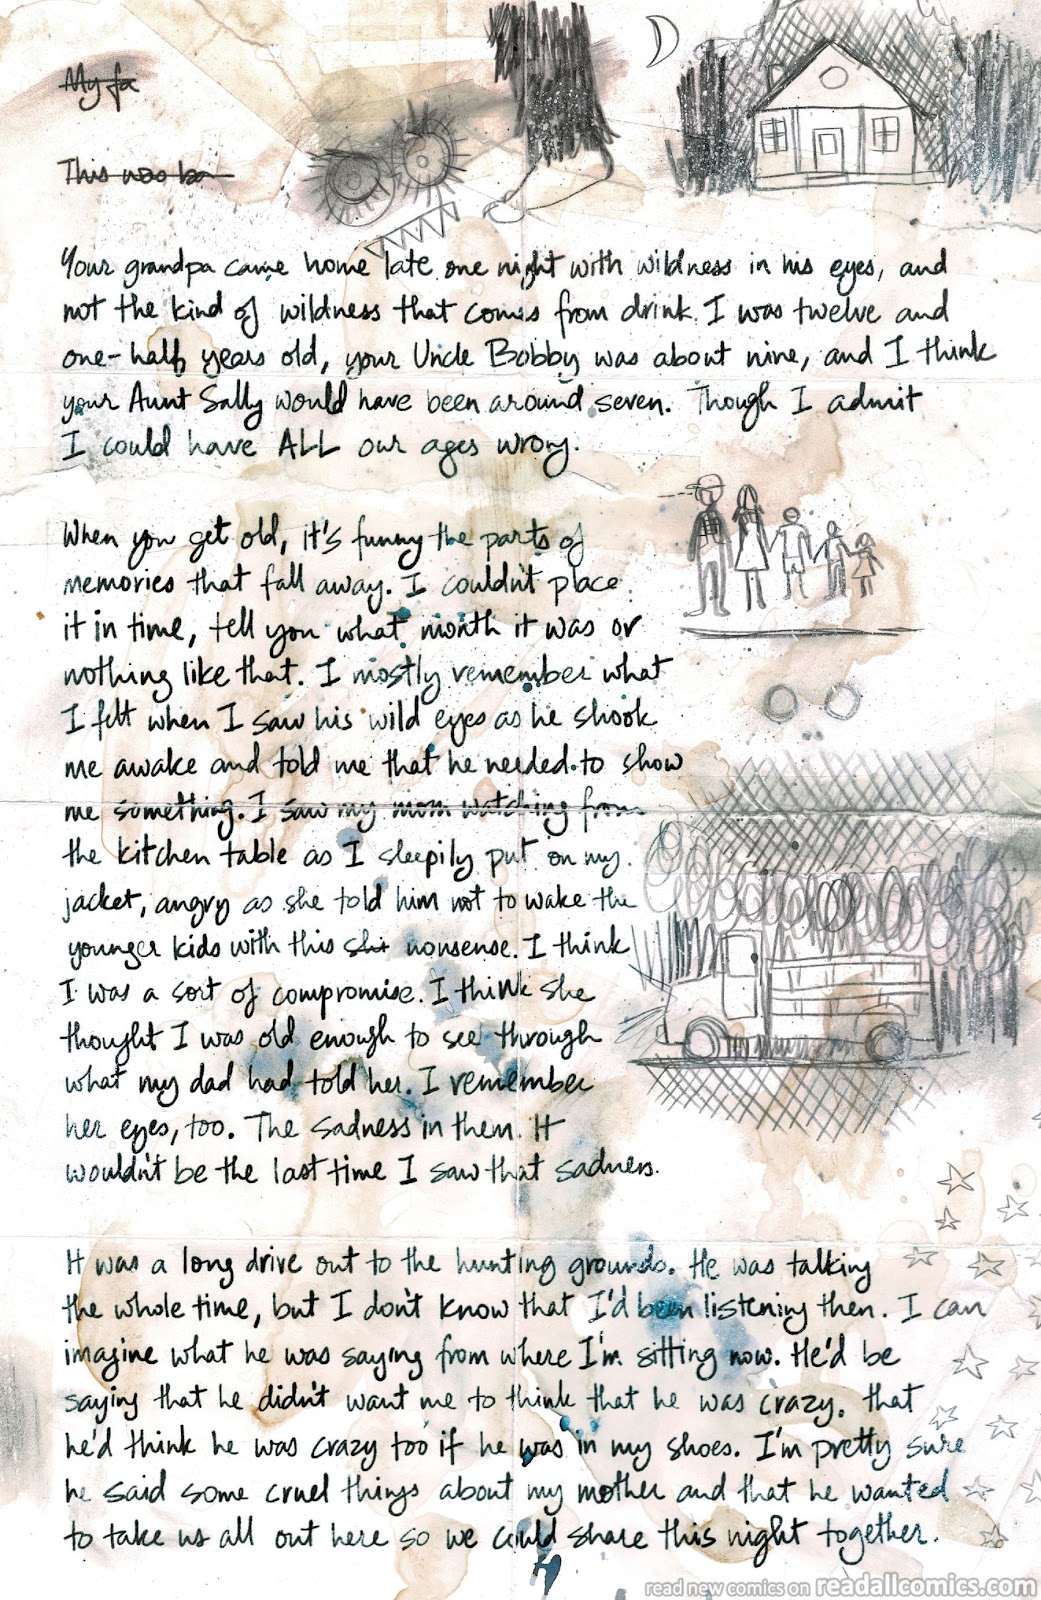 My fa
This was ba
Your grandpa came home late one night with wildness in his eyes, and
not the kind of wildness that comes from drink. I was twelve and
one-half years old, your Uncle Bobby was about nine, and I think
your Aunt Sally would have been around seven. Though I admit
I could have ALL our ages wrong.
When you get old, it's funny the parts of
memories that fall away. I couldn't place
it in time, tell you what month it was or
nothing like that. I mostly remember what
I felt when I saw his wild eyes as he shook
me awake and told me that he needed to show
me something. I saw my mom watching from
the kitchen table as I sleepily put on my
jacket, angry as she told him not to wake the
younger kids with this shit nonsense. I think
I was a sort of compromise. I think she
thought I was old enough to see through
what my dad had told her. I remember
her eyes, too. The sadness in them. It
wouldn't be the last time I saw that sadness.
It was a long drive out to the hunting grounds. He was talking
the whole time, but I don't know that I'd been listening then. I can
imagine what he was saying from where I'm sitting now. He'd be
saying that he didn't want me to think that he was crazy, that
he'd think he was crazy too if he was in my shoes. I'm pretty sure
he said some cruel things about my mother and that he wanted
to take us all out here so we could share this night together.
read new comics on readallcomics.com